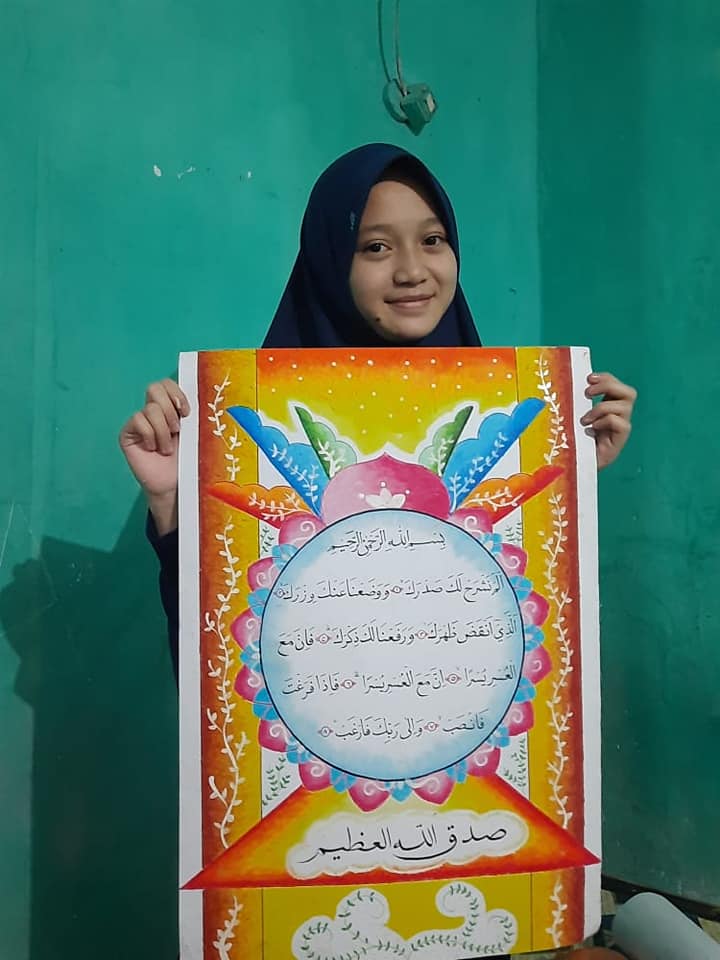 بِسْمِ اللهِ الرَّحْمٰنِ الرَّحِيْمِ
اَلَمْ نَشْرَحْ لَكَ صَدْرَكَ ۝١ وَوَضَعْنَا عَنْكَ وِزْرَكَ ۝٢
الَّذِيْٓ اَنْقَضَ ظَهْرَكَ ۝٣ وَرَفَعْنَا لَكَ ذِكْرَكَ ۝٤ فَاِنَّ مَعَ
الْعُسْرِ يُسْرًا ۝٥ اِنَّ مَعَ الْعُسْرِ يُسْرًا ۝٦ فَاِذَا فَرَغْتَ
فَانْصَبْ ۝٧ وَاِلٰى رَبِّكَ فَارْغَبْ ۝٨
صدق الله العظيم